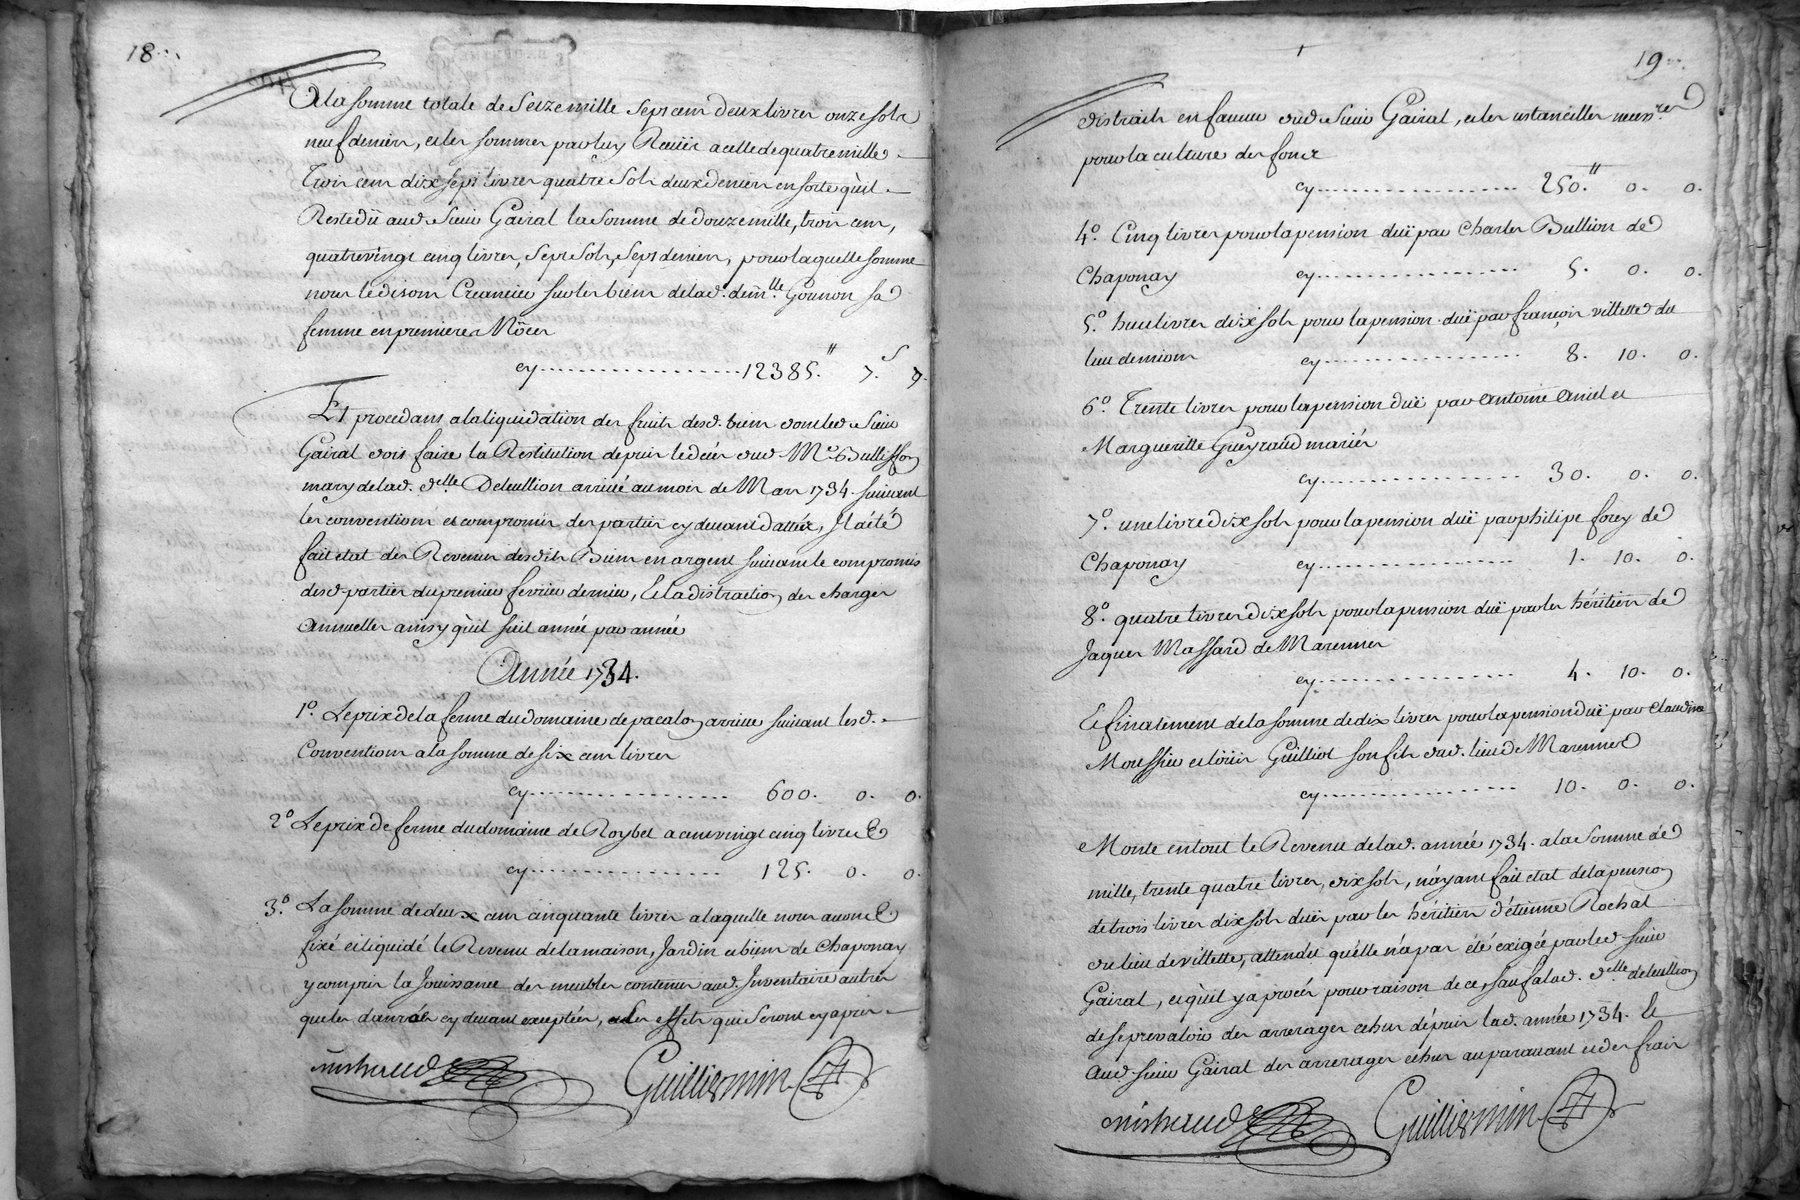 18
A la somme totale de Seize mille sept cens deux livres onze sols
neuf deniers, et les sommes par luy Reçuës a celle de quatre mille
Trois cens dix sept livres quatre Sols deux deniers en sorte qu'il
Reste dû aud. Sieur Gairal la Somme de douze mille, trois cens,
quatrevingt cinq livres, Sept Sols, Sept deniers, pour laquelle somme
nous le disons Creancier sur les biens de lad. dem.lle Gounon sa
femme en premieres Nôces
cy 12385.# 7.s 7.
Et procedans a la liquidation des fruits desd. biens dont led. Sieur
Gairal doit faire la Restitution depuis le décés dud. Mre Bullisson
mary de lad. delle Deleullion arrivé au mois de Mars 1734. suivant
les conventions et compromis des parties cy devant dattéz, Il a été
fait etat des Revenus desdits Biens en argent suivant le compromis
desd. parties du premier fevrier dernier, Et la distraction des charges
Annuelles ainsy qu'il suit année par année
Année 1734.
1º. Le prix de la ferme du domaine de pacalon arrive suivant lesd.
Conventions a la somme de six cens livres
cy 600. 0. 0.
2º Le prix de ferme du domaine de Roybet a cent vingt cinq livres
cy 125. 0. 0.
3.º La somme de deux cens cinquante livres a laquelle nous avons
fixé et liquidé le Revenu de la maison, Jardin et biens de Chaponay
y compris la Jouissance des meubles contenus aud. Inventaire autres
que les danrées cy devant exceptées, et les effets qui Seront cy apres
Michaud Guillermin
19
distraits en faveur dud. Sieur Gairal, et les ustancilles necess.res
pour la culture des fonds
cy 250.# 0. 0.
4º. Cinq livres pour la pension duë par Charles Bullion de
Chaponay cy 5. 0. 0.
5º. huit livres dix sols pour la pension duë par françois villette du
lieu de mions cy 8. 10. 0.
6º. Trente livres pour la pension duë par Antoine Aniel et
Margueritte Gueyraud mariés
cy 30. 0. 0.
7º. une livre dix sols pour la pension duë par philipe forey de
Chaponay cy 1. 10. 0.
8º. quatre livres dix sols pour la pension duë par les héritiers de
Jaques Massard de Marennes
cy 4. 10. 0.
Et finalement de la somme de dix livres pour la pension duë par Claudine
Moussier et loüis Guilliot son fils dud. lieu de Marennes
cy 10. 0. 0.
Monte en tout le Revenu de lad. année 1734. a la Somme de
mille, trente quatre livres, dix sols, n'ayant fait etat de la pension
de trois livres dix sols duës par les héritiers d'étienne Rochat
du lieu de villette, attendu qu'elle n'a pas été exigée par led. Sieur
Gairal, et qu'il y a procés pour raison de ce, sauf a lad. delle deleullion
de se prevaloir des arrerages echus dépuis lad. année 1734. Et
Aud. sieur Gairal des arrerages echus auparavant et des frais
Michaud Guillermin